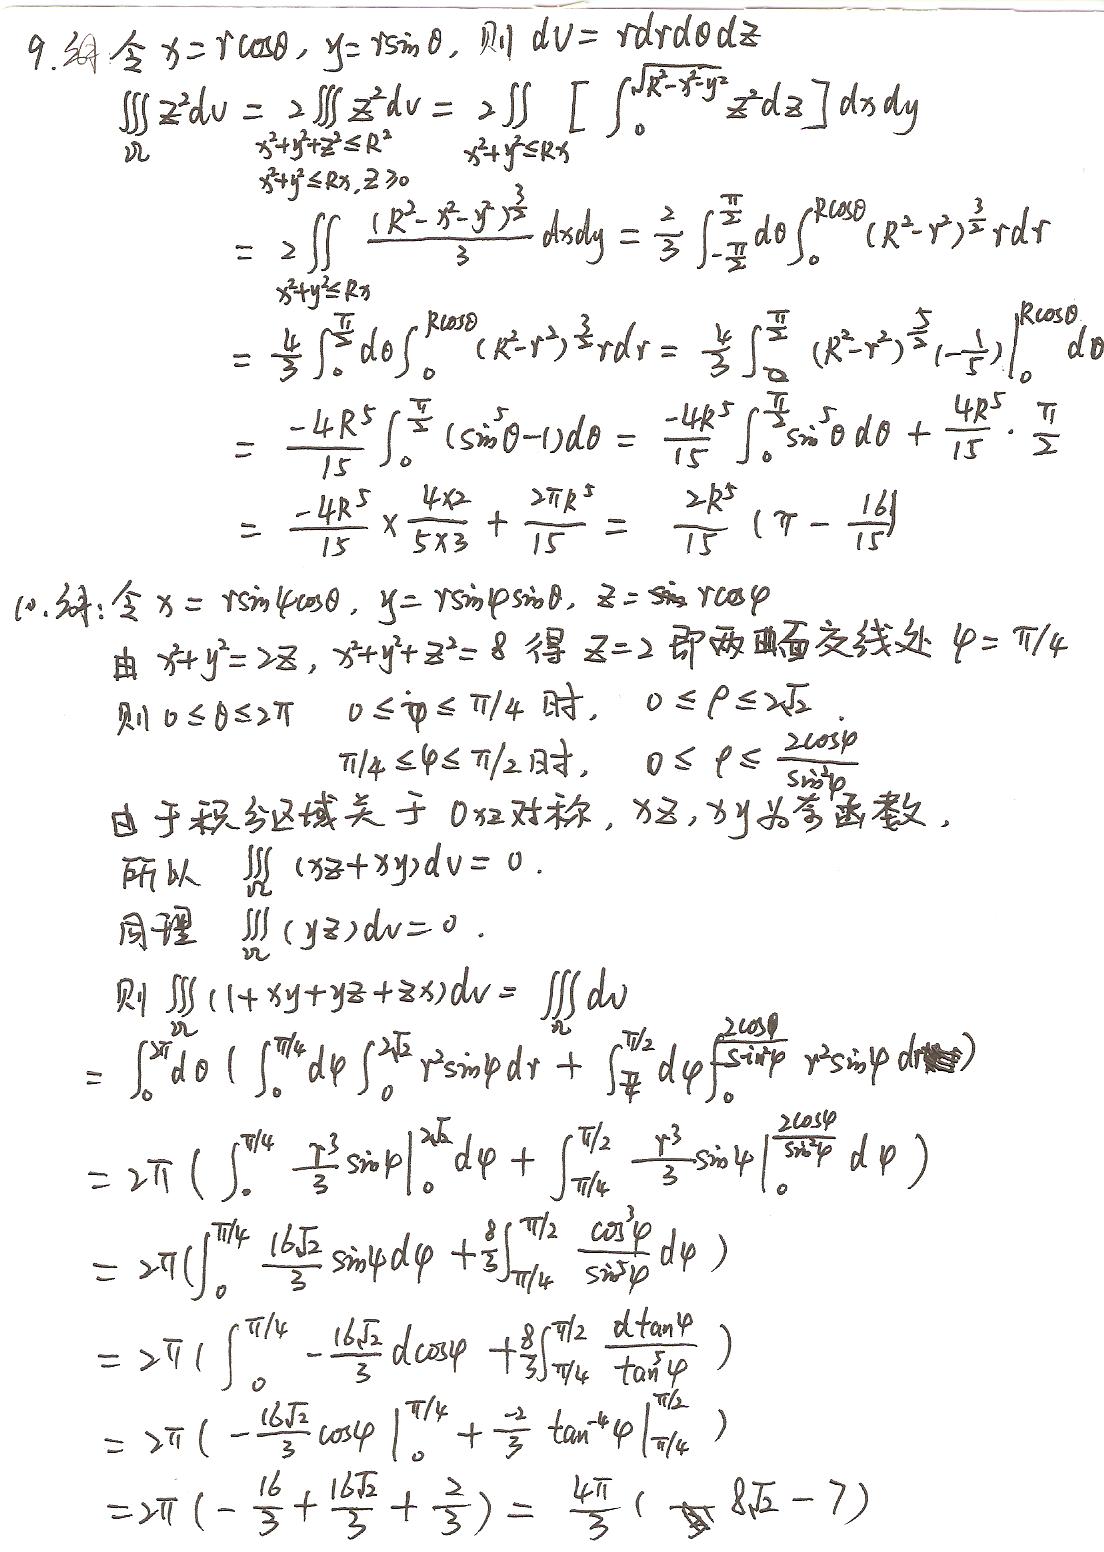 9. 解 令 x = rcosθ, y = rsinθ, 则 dv = rdrdθdz
∭_Ω z²dv = 2∭_{x²+y²+z²≤R², x²+y²≤Rx, z≥0} z²dv = 2∬_{x²+y²≤Rx} [∫_0^{√(R²-x²-y²)} z²dz] dxdy
= 2∬_{x²+y²≤Rx} (R²-x²-y²)^{3/2}/3 dxdy = 2/3 ∫_{-π/2}^{π/2} dθ ∫_0^{Rcosθ} (R²-r²)^{3/2} rdr
= 4/3 ∫_0^{π/2} dθ ∫_0^{Rcosθ} (R²-r²)^{3/2} rdr = 4/3 ∫_0^{π/2} (R²-r²)^{5/2} (-1/5) |_0^{Rcosθ} dθ
= -4R⁵/15 ∫_0^{π/2} (sin⁵θ-1)dθ = -4R⁵/15 ∫_0^{π/2} sin⁵θ dθ + 4R⁵/15 · π/2
= -4R⁵/15 × 4×2/5×3 + 2πR⁵/15 = 2R⁵/15 (π - 16/15)
10. 解: 令 x = rsinφcosθ, y = rsinφsinθ, z = rcosφ
由 x²+y²=2z, x²+y²+z²=8 得 z=2 即两曲面交线处 φ = π/4
则 0≤θ≤2π 0≤φ≤π/4 时, 0≤ρ≤2√2.
π/4≤φ≤π/2 时, 0≤ρ≤ 2cosφ/sin²φ
由于积分区域关于 0xz 对称, xz, xy 为奇函数,
所以 ∭_Ω (xz+xy)dv = 0.
同理 ∭_Ω (yz)dv = 0.
则 ∭_Ω (1+xy+yz+zx)dv = ∭_Ω dv
= ∫_0^{2π} dθ (∫_0^{π/4} dφ ∫_0^{2√2} r²sinφdr + ∫_{π/4}^{π/2} dφ ∫_0^{2cosφ/sin²φ} r²sinφ dr)
= 2π (∫_0^{π/4} r³/3 sinφ |_0^{2√2} dφ + ∫_{π/4}^{π/2} r³/3 sinφ |_0^{2cosφ/sin²φ} dφ)
= 2π (∫_0^{π/4} 16√2/3 sinφdφ + 8/3 ∫_{π/4}^{π/2} cos³φ/sin⁵φ dφ)
= 2π (∫_0^{π/4} -16√2/3 dcosφ + 8/3 ∫_{π/4}^{π/2} dtanφ/tan⁵φ)
= 2π (-16√2/3 cosφ |_0^{π/4} + -2/3 tan⁻⁴φ |_{π/4}^{π/2})
= 2π (-16/3 + 16√2/3 + 2/3) = 4π/3 (8√2 - 7)